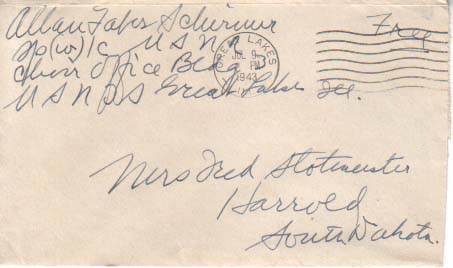 Allan Schirmer Free
Sp(W)1c USNR
Choir Office Bldg 3
USNTS Great Lakes Ill.
GREAT LAKES
JUL 9
PM
1943
Mrs Fred Stotmeister
Harrold
South Dakota.